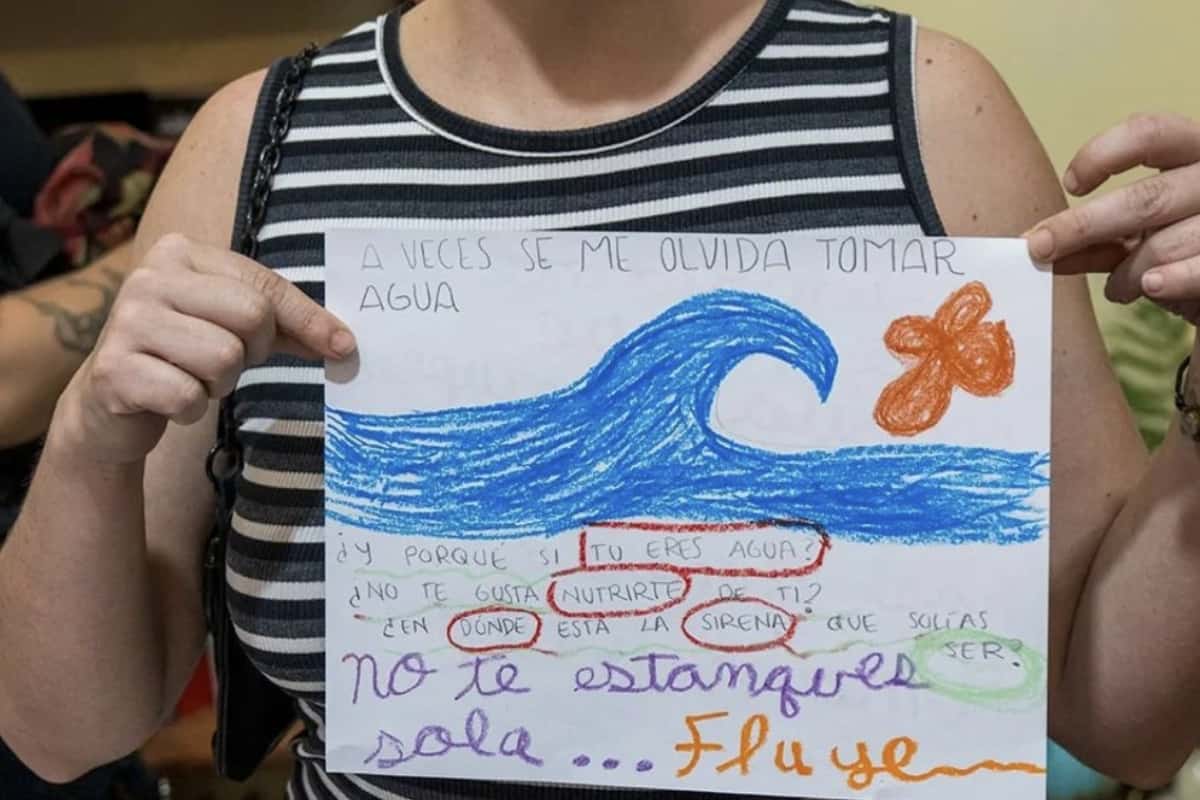 A VECES SE ME OLVIDA TOMAR
AGUA
¿Y PORQUÉ SI TU ERES AGUA?
¿NO TE GUSTA NUTRIRTE DE TI?
¿EN DÓNDE ESTA LA SIRENA QUE SOLÍAS
SER?
no te estanques
sola ... Fluye